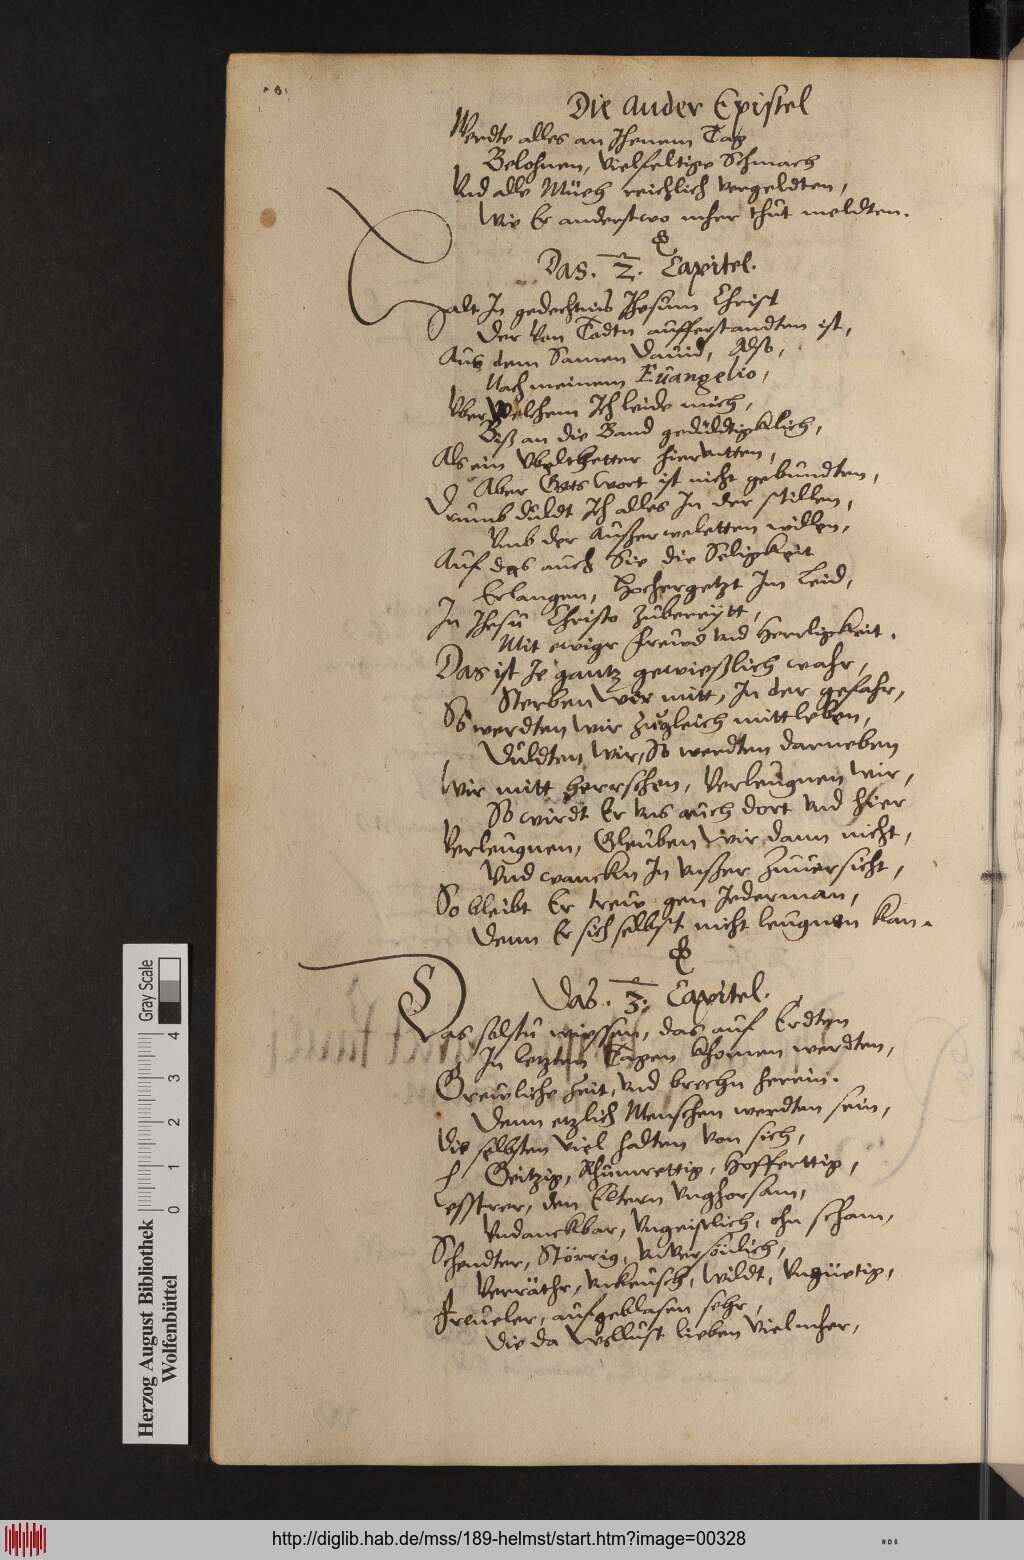 Die ander Epistel
Werdte alles an Jhenem Tag
Belohnen, Vielfeltige Schmach
Vnd alle Müeh reichlich vergeldten,
Wie Er anderstwo mher thut meldten.
Das. 2. Capitel.
Halt In gedechtnus Jhesum Christ
Der Von Todtn aufferstandten ist,
Aus dem Samen Dauid, Also,
Nach meinem Euangelio,
Vber Welchem Ich leide mich,
Biß an die Band gedüldtigklich,
Als ein Vbelthetter hieruntten,
Aber Gots Wort ist nicht gebundten,
Drumb duldt Ich alles In der stillen,
Vmb der Außerweletten willen,
Auf das auch Sie die Seligkeit
Erlangen, Hochergetzt Im Leid,
In Jhesu Christo Zubereytt,
Mit ewigr freüd vnd Herrligkeit.
Das ist Je gantz gewießlich wahr,
Sterben Wir mitt, In der gefahr,
So werdten Wir Zugleich mittleben,
Duldten Wir, So werdten darneben
Wir mitt herrschen, Verleugnen Wir,
So wirdt Er vns auch dort vnd hier
Verleugnen, Gleuben Wir dann nicht,
Vnd wanckn In vnßer Zuuersicht,
So bleibt Er trew gen Jederman,
Denn Er sich selbst nicht leugnen kan.
Das. 3. Capitel.
Das solstu wießen, das auf Erdtn
In letzten Tagen khomen werdten,
Grewliche Zeit, vnd brechn herein.
Denn etzlich Menschen werdten sein,
Die selbsten viel haltten von sich,
Geitzig, Rhumrettig, Hofferttig,
Lesstrer, den Eltern Vnghorsam,
Vndanckbar, Vngeistlich, ohn scham,
Schendter, Störrig, Vnversönlich,
Verräthr, Vnkeusch, Wildt, Vngüetig,
Freueler, aufgeblasen sehr,
Die da Wollust lieben Vielmher,
Gray Scale
0 1 2 3 4
Herzog August Bibliothek
Wolfenbüttel
http://diglib.hab.de/mss/189-helmst/start.htm?image=00328